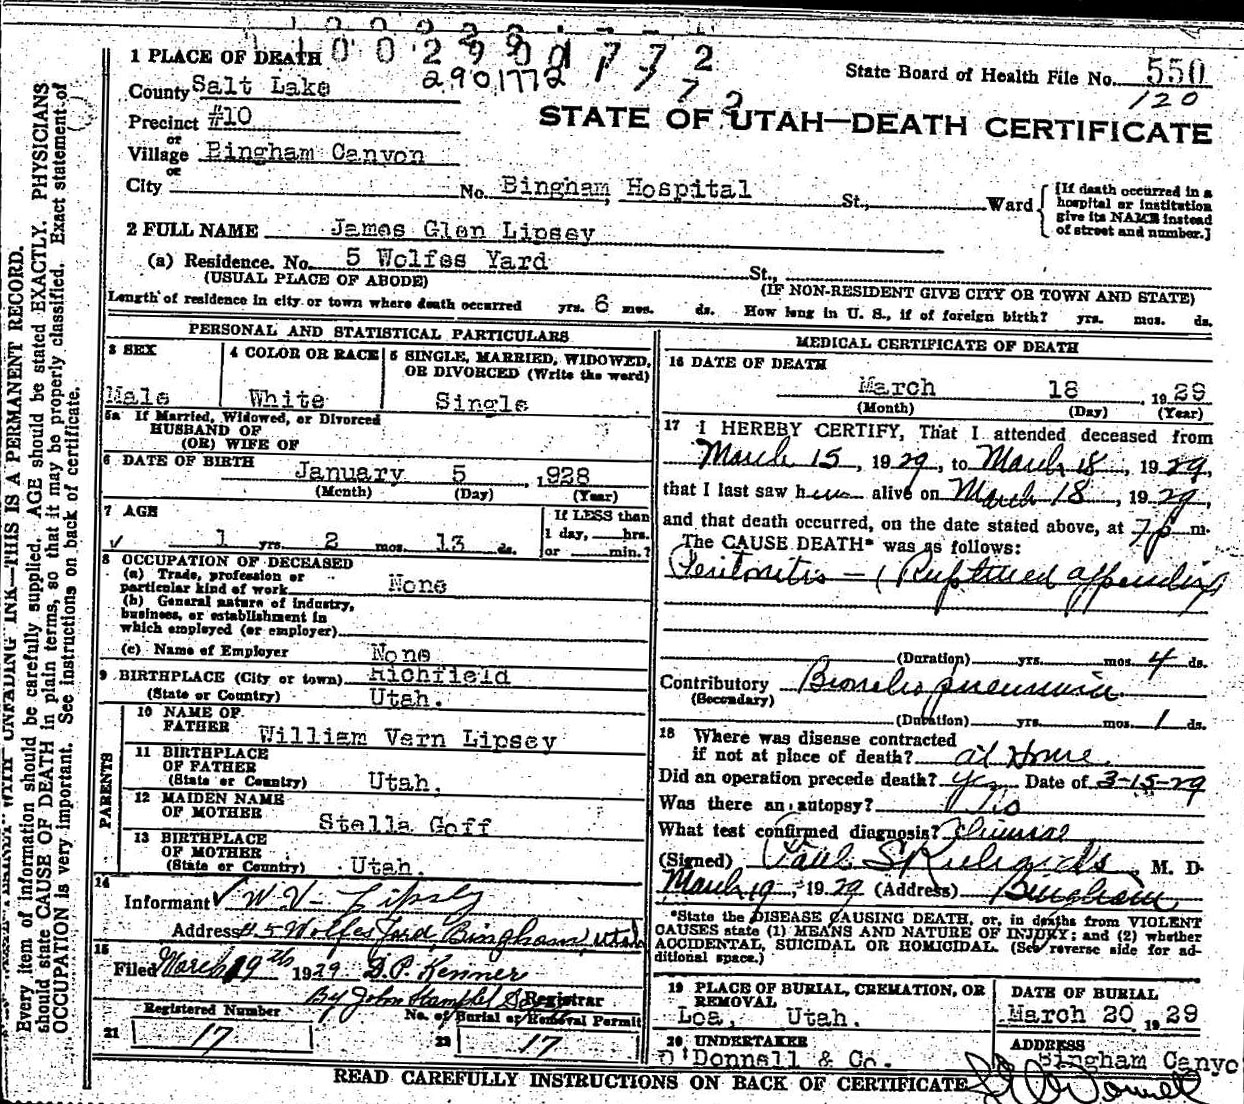 1 0 0 2 9 0 1 7 7 2
2901772
1 PLACE OF DEATH
State Board of Health File No. 550
120
County Salt Lake
Precinct #10
or
Village Bingham Canyon
or
STATE OF UTAH—DEATH CERTIFICATE
City No. Bingham Hospital St., Ward
[If death occurred in a hospital or institution give its NAME instead of street and number.]
2 FULL NAME James Glen Lipsey
(a) Residence. No. 5 Wolfes Yard St.,
(USUAL PLACE OF ABODE) (IF NON-RESIDENT GIVE CITY OR TOWN AND STATE)
Length of residence in city or town where death occurred yrs. 6 mos. ds. How long in U. S., if of foreign birth? yrs. mos. ds.
PERSONAL AND STATISTICAL PARTICULARS
3 SEX
Male
4 COLOR OR RACE
White
5 SINGLE, MARRIED, WIDOWED, OR DIVORCED (Write the word)
Single
5a If Married, Widowed, or Divorced
HUSBAND OF
(OR) WIFE OF
6 DATE OF BIRTH
January 5, 1928
(Month) (Day) (Year)
7 AGE
1 yrs. 2 mos. 13 ds.
If LESS than
1 day, hrs.
or min.?
8 OCCUPATION OF DECEASED
(a) Trade, profession or
particular kind of work None
(b) General nature of industry,
business, or establishment in
which employed (or employer)
(c) Name of Employer None
9 BIRTHPLACE (City or town) Richfield
(State or Country) Utah.
PARENTS
10 NAME OF
FATHER William Vern Lipsey
11 BIRTHPLACE
OF FATHER
(State or Country) Utah.
12 MAIDEN NAME
OF MOTHER Stella Goff
13 BIRTHPLACE
OF MOTHER
(State or Country) Utah.
14
Informant W. V. Lipsey
Address # 5 Wolfes Yard, Bingham, Utah
15
Filed March 19th 1929 D. P. Kenner
By John Registrar
Registered Number
21 17
No. of Burial or Removal Permit
22 17
MEDICAL CERTIFICATE OF DEATH
16 DATE OF DEATH
March 18, 1929
(Month) (Day) (Year)
17 I HEREBY CERTIFY, That I attended deceased from
March 15, 1929, to March 18, 1929,
that I last saw him alive on March 18, 1929,
and that death occurred, on the date stated above, at 7 p m.
The CAUSE DEATH* was as follows:
Peritonitis — (Ruptured appendix
(Duration) yrs. mos. 4 ds.
Contributory Broncho pneumonia
(Secondary)
(Duration) yrs. mos. 1 ds.
18 Where was disease contracted
if not at place of death? at Home.
Did an operation precede death? Yes Date of 3-15-29
Was there an autopsy? No
What test confirmed diagnosis? Clinical
(Signed) Paul S. , M. D.
March 19, 1929 (Address) Bingham
*State the DISEASE CAUSING DEATH, or, in deaths from VIOLENT
CAUSES state (1) MEANS AND NATURE OF INJURY; and (2) whether
ACCIDENTAL, SUICIDAL OR HOMICIDAL. (See reverse side for ad-
ditional space.)
19 PLACE OF BURIAL, CREMATION, OR
REMOVAL
Loa, Utah.
DATE OF BURIAL
March 20, 1929
20 UNDERTAKER
O'Donnell & Co.
ADDRESS
Bingham Canyo
READ CAREFULLY INSTRUCTIONS ON BACK OF CERTIFICATE
UNFADING INK—THIS IS A PERMANENT RECORD.
Every item of information should be carefully supplied. AGE should be stated EXACTLY. PHYSICIANS
should state CAUSE OF DEATH in plain terms, so that it may be properly classified. Exact statement of
OCCUPATION is very important. See instructions on back of certificate.